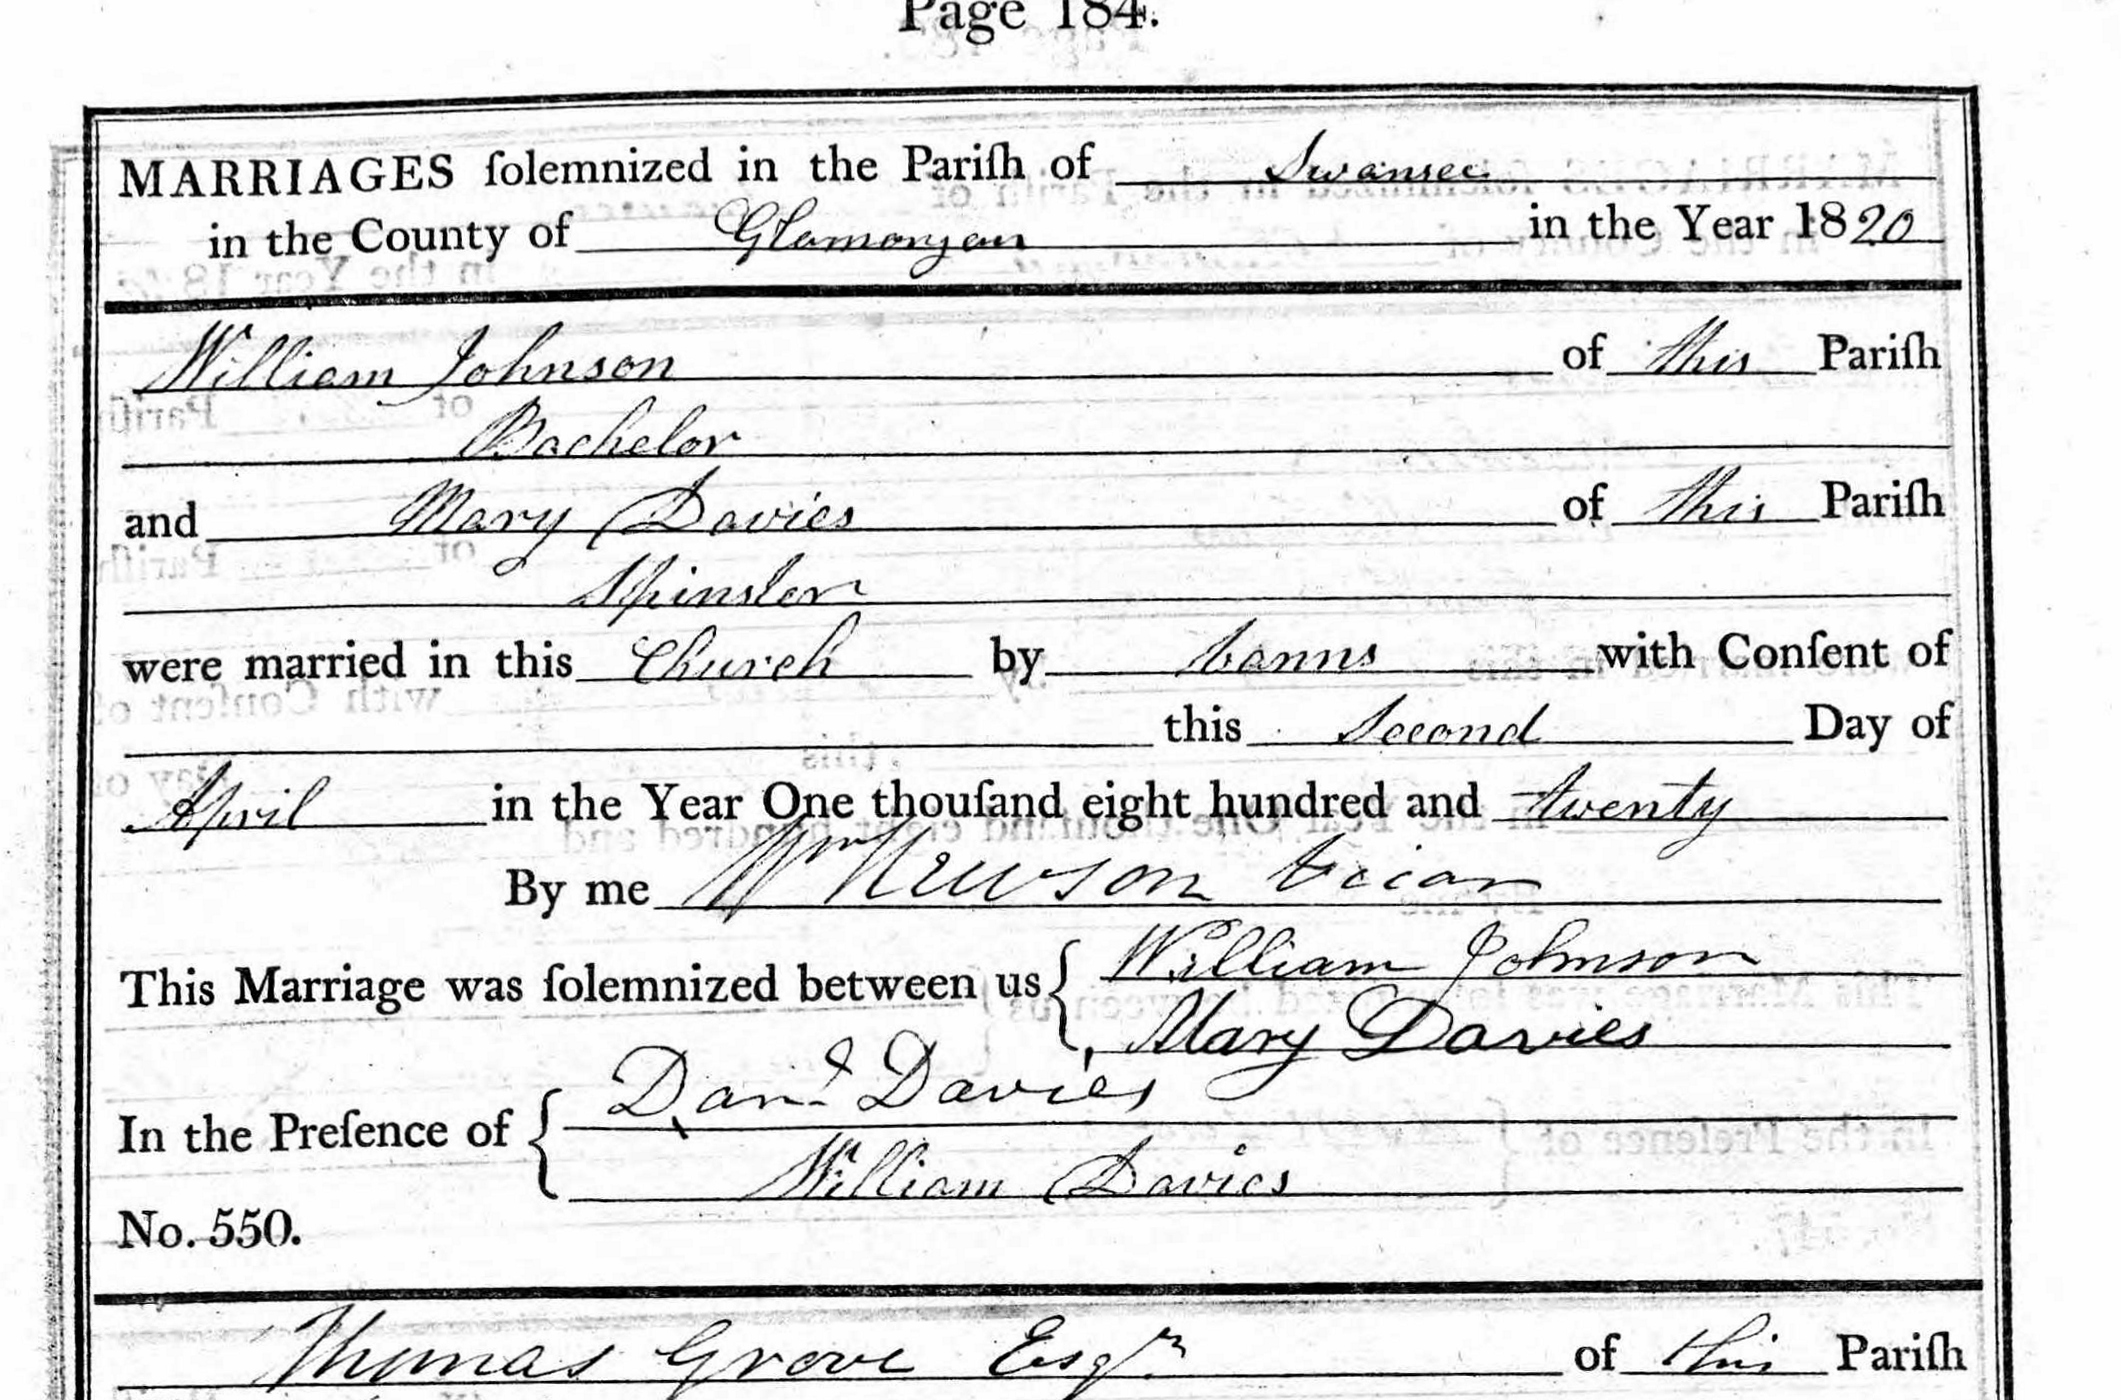 Page 184.
MARRIAGES ſolemnized in the Pariſh of Swansea
in the County of Glamorgan in the Year 1820
William Johnson of this Pariſh
Bachelor
and Mary Davies of this Pariſh
Spinster
were married in this Church by banns with Conſent of
this Second Day of
April in the Year One thouſand eight hundred and twenty
By me Wm Hewson Vicar
This Marriage was ſolemnized between us { William Johnson
Mary Davies
In the Preſence of { Danl Davies
William Davies
No. 550.
Thomas Grove Esqr of this Pariſh